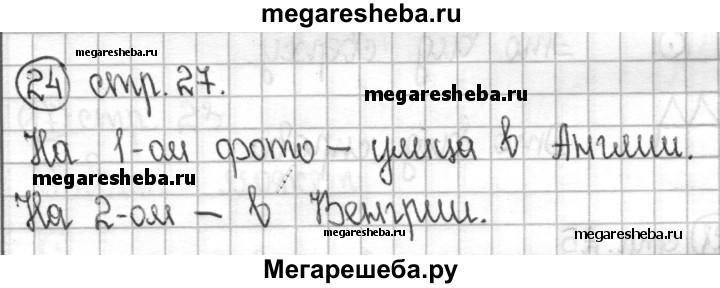 megaresheba.ru
megaresheba.ru
24 стр. 27.
megaresheba.ru
На 1-ом фото – улица в Англии.
megaresheba.ru
На 2-ом – в Венгрии.
megaresheba.ru
megaresheba.ru
Мегарешеба.ру